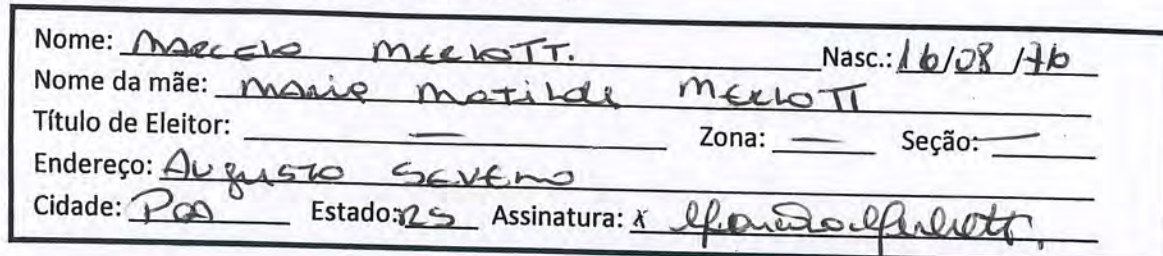 Nome: Marcelo Merlotti. Nasc.: 16/08/76
Nome da mãe: Maria Matilde Merlotti
Título de Eleitor: — Zona: — Seção: —
Endereço: Augusto Severo
Cidade: POA Estado: RS Assinatura: x